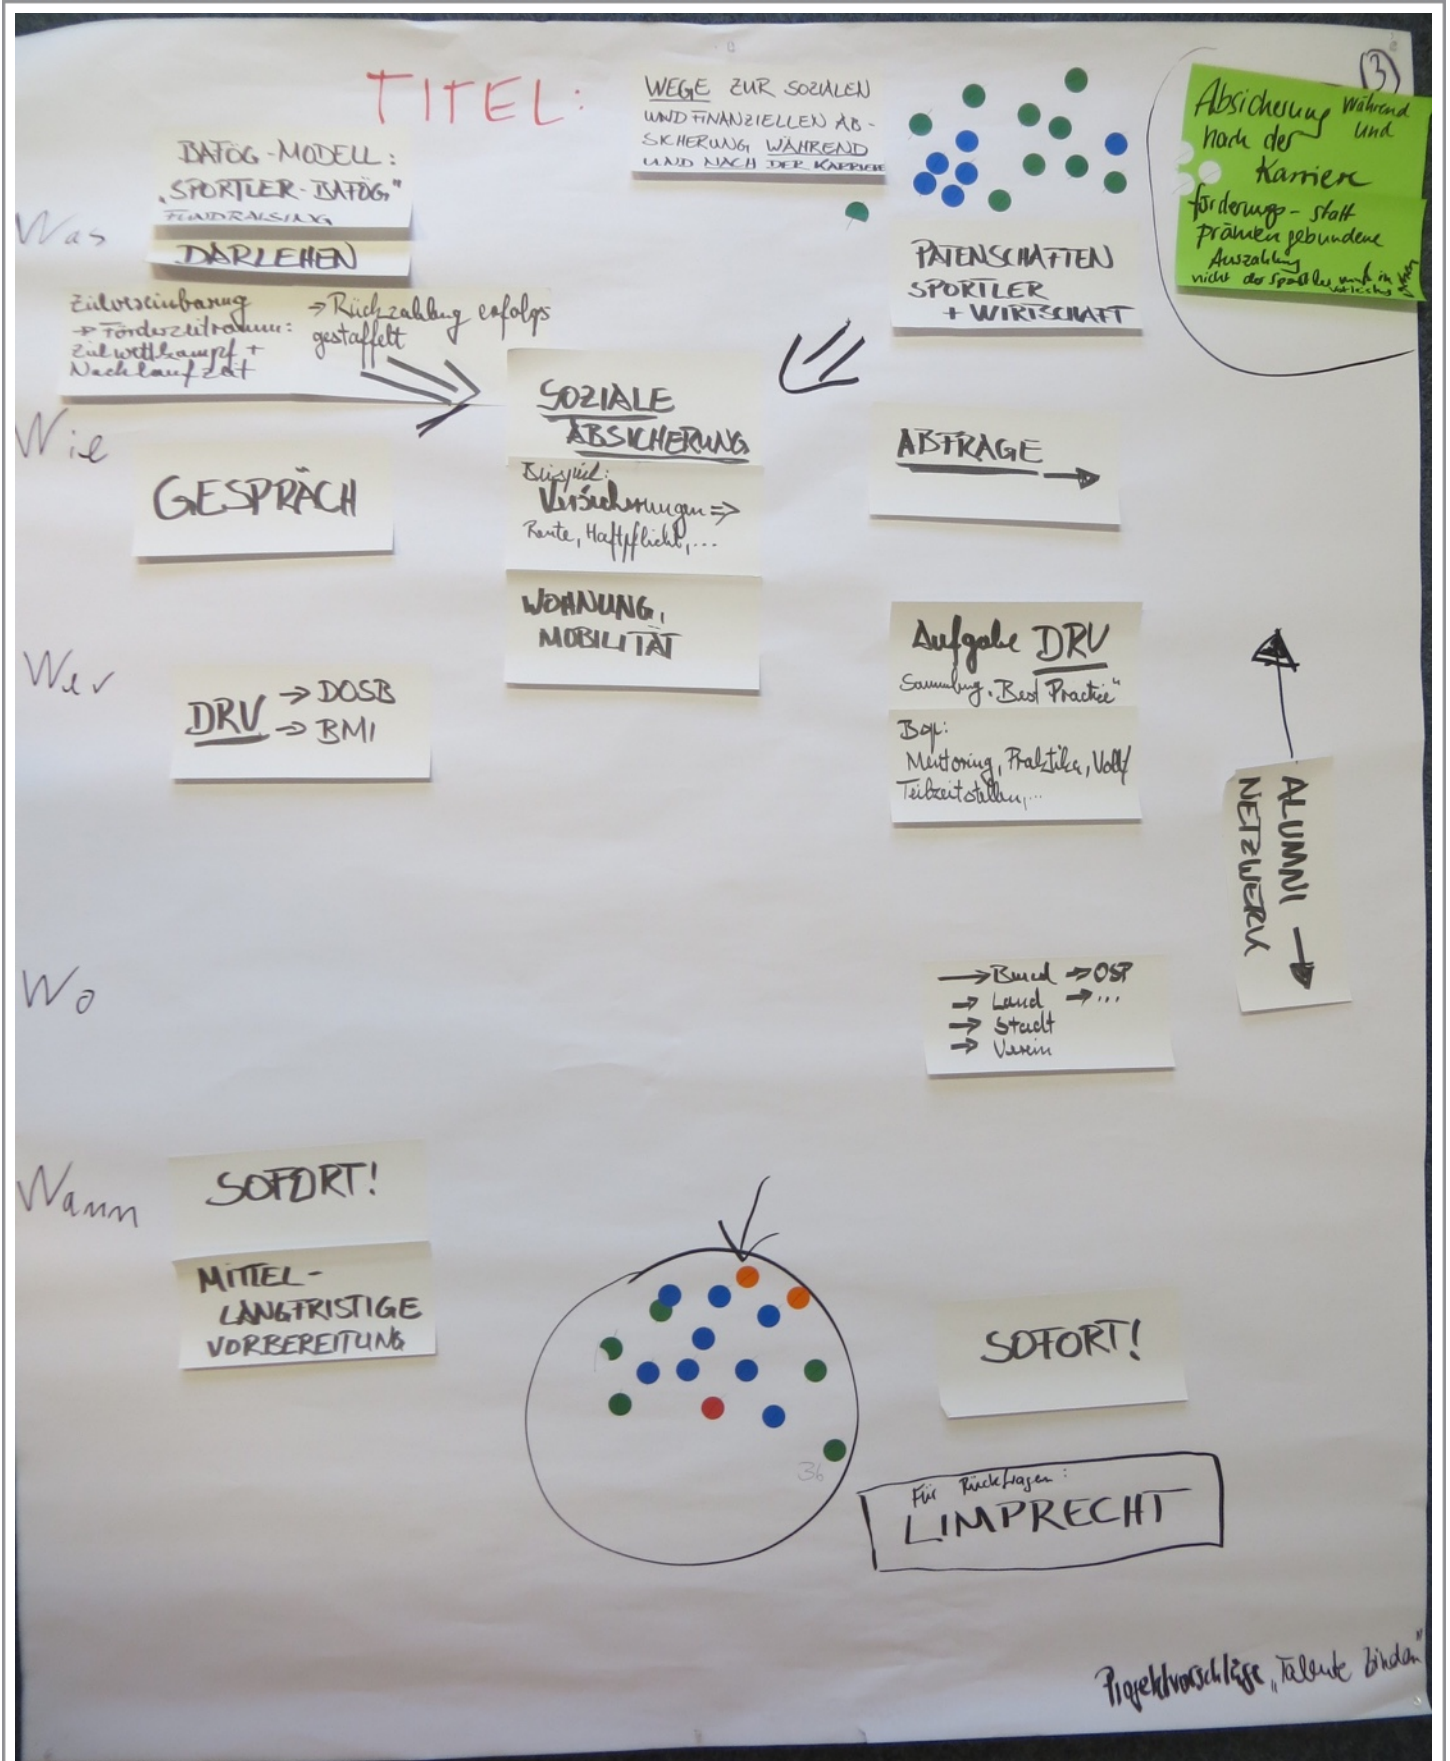 TITEL:
WEGE ZUR SOZIALEN
UND FINANZIELLEN AB-
SICHERUNG WÄHREND
UND NACH DER KARRIERE
(3)
Absicherung während
und
nach der
Karriere
förderungs- statt
prämiengebundene
Auszahlung
nicht der Sportler muss in
Was
BAFÖG-MODELL:
„SPORTLER-BAFÖG"
FUNDRAISING
DARLEHEN
Zielvereinbarung
→ Förderzeitraum:
Zielwettkampf +
Nachlaufzeit
⇒ Rückzahlung erfolgs
gestaffelt
PATENSCHAFTEN
SPORTLER
+ WIRTSCHAFT
Wie
GESPRÄCH
SOZIALE
ABSICHERUNG
Beispiel:
Versicherungen ⇒
Rente, Haftpflicht, ...
WOHNUNG,
MOBILITÄT
ABFRAGE →
Wer
DRV → DOSB
→ BMI
Aufgabe DRV
Sammlung „Best Practice"
Bsp:
Mentoring, Praktika, Voll/
Teilzeitstellen, ...
ALUMNI →
NETZWERK
Wo
→ Bund → OSP
→ Land → ...
→ Stadt
→ Verein
Wann
SOFORT!
MITTEL-
LANGFRISTIGE
VORBEREITUNG
SOFORT!
36
Für Rückfragen:
LIMPRECHT
Projektvorschläge „Talente binden"